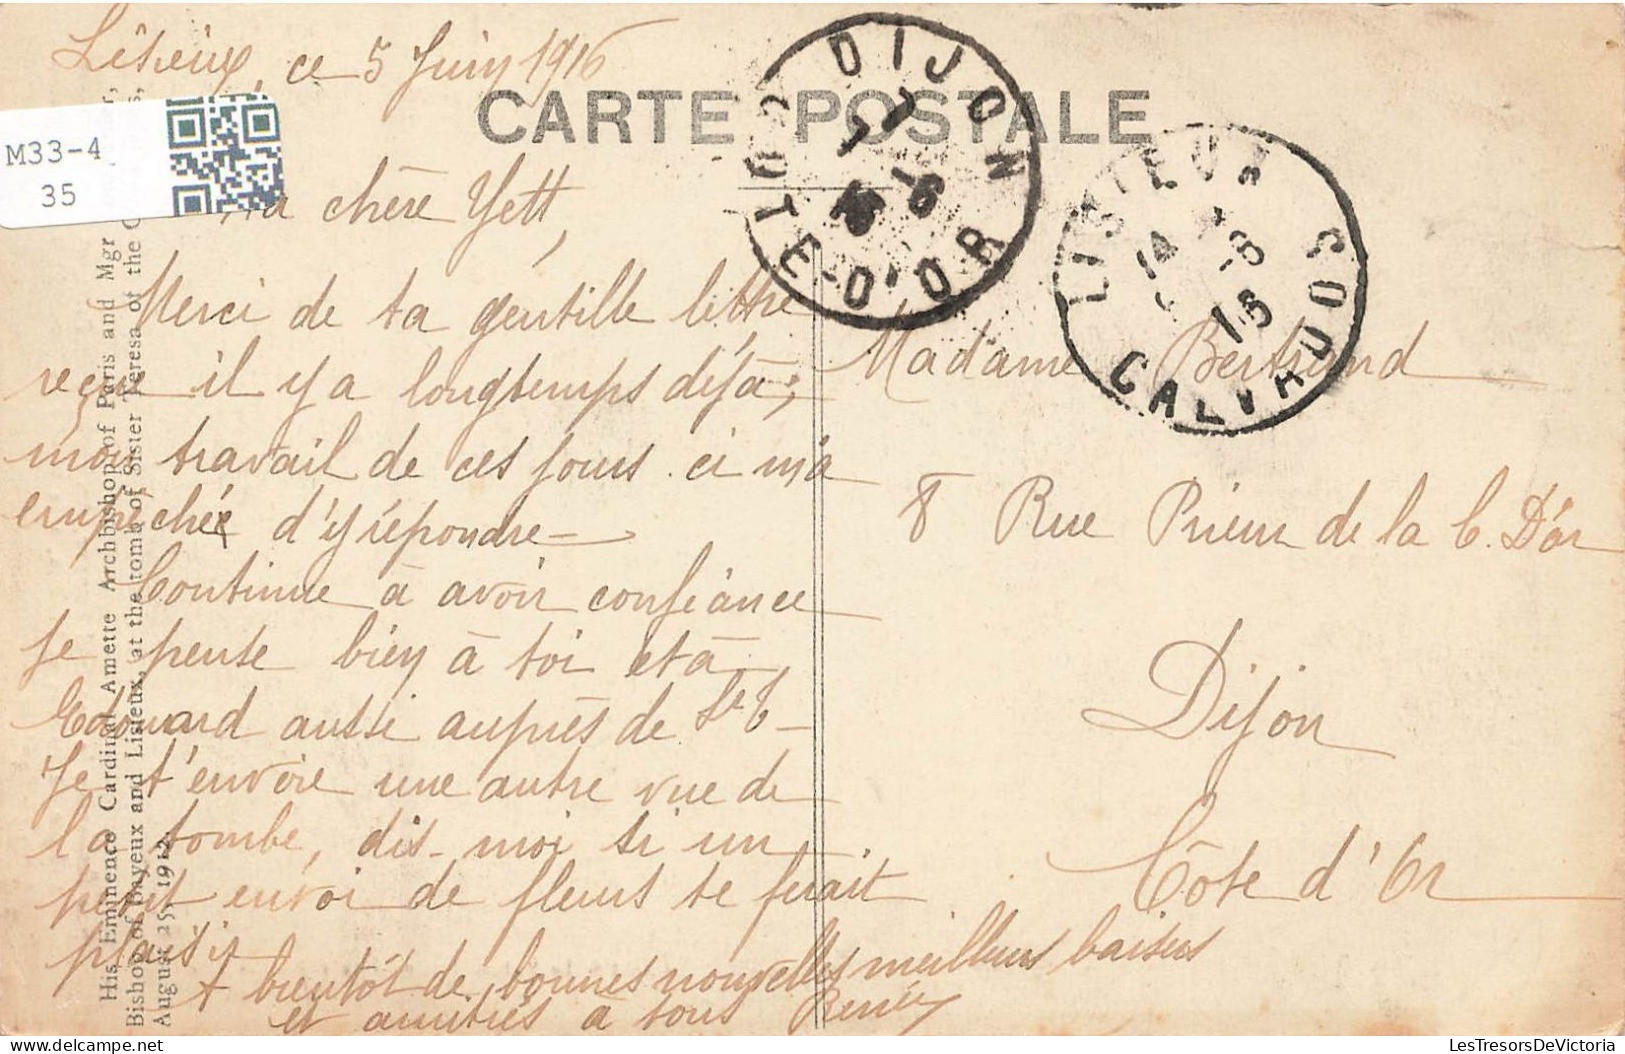 Lisieux, ce 5 Juin 1916
CARTE POSTALE
M33-4
35
DIJON
COTE-D'OR
LISIEUX
CALVADOS
Ma chère Yett,
Merci de ta gentille lettre
reçue il y a longtemps déjà;
mon travail de ces jours-ci m'a
empêchée d'y répondre –
Continue à avoir confiance
je pense bien à toi et à
Edouard aussi auprès de Sr T –
Je t'envoie une autre vue de
la tombe, dis-moi si un
petit envoi de fleurs te ferait
plaisir
A bientôt de bonnes nouvelles meilleurs baisers
et amitiés à tous Renée
Madame Bertrand
8 Rue Prieur de la C. D'or
Dijon
Côte d'Or
His Eminence Cardinal Amette Archbishop of Paris and Mgr
Bishop of Bayeux and Lisieux, at the tomb of Sister Teresa of the
August 25, 1912.
LesTresorsDeVictoria